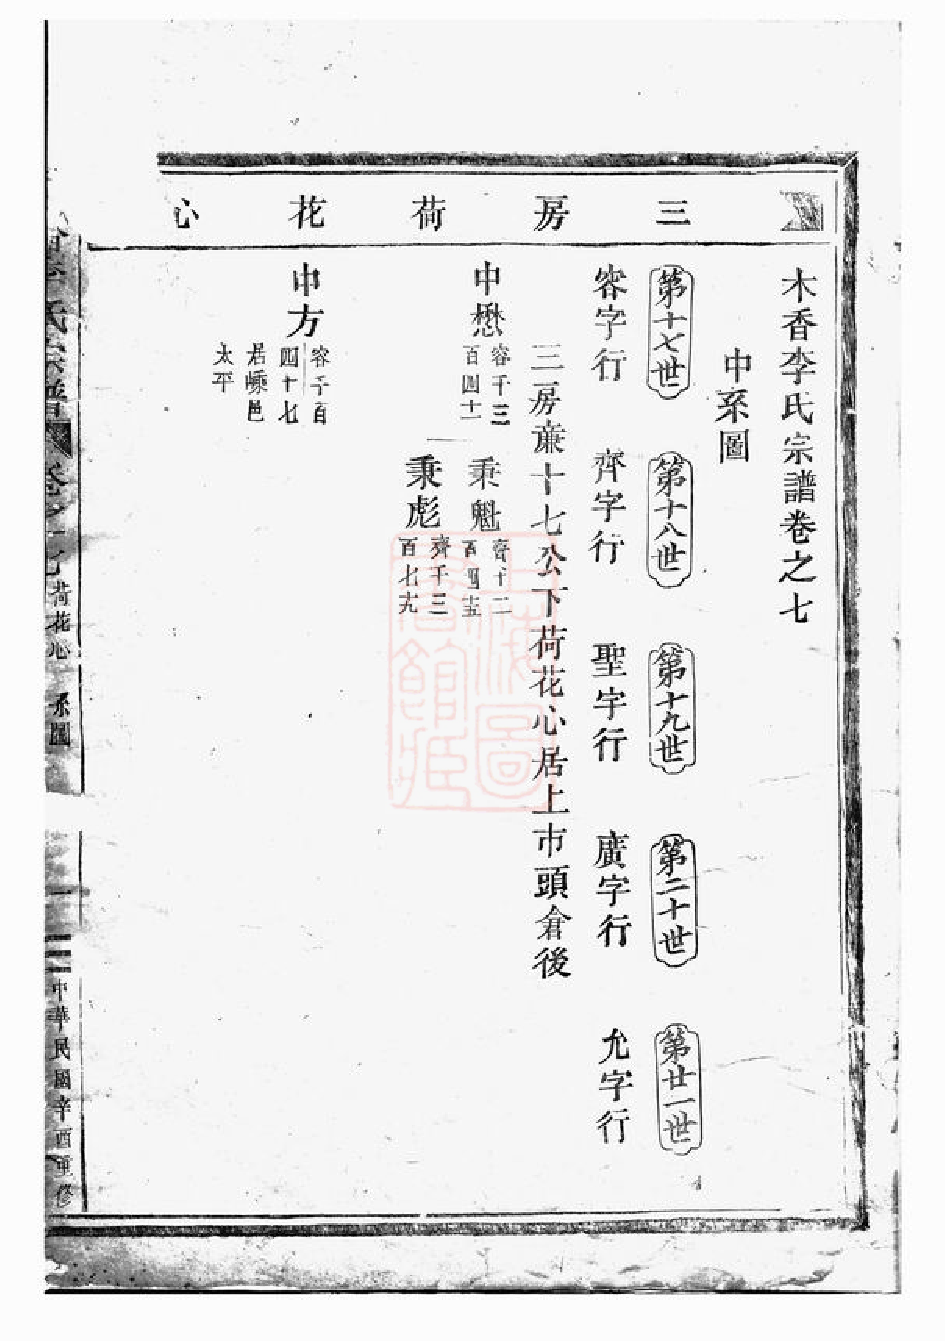 三房荷花心
木香李氏宗譜卷之七
中系圖
第十七世
第十八世
第十九世
第二十世
第廿一世
容字行
齊字行
聖字行
廣字行
允字行
三房亷十七公下荷花心居上市頭倉後
申懋
容千三
百四十一
秉魁
齊十二
百四五
秉彪
齊千三
百七九
申方
容千百
四十七
居嵊邑
太平
李氏宗譜
卷之七
荷花心
系圖
一
中華民國辛酉重修
上海圖書館藏